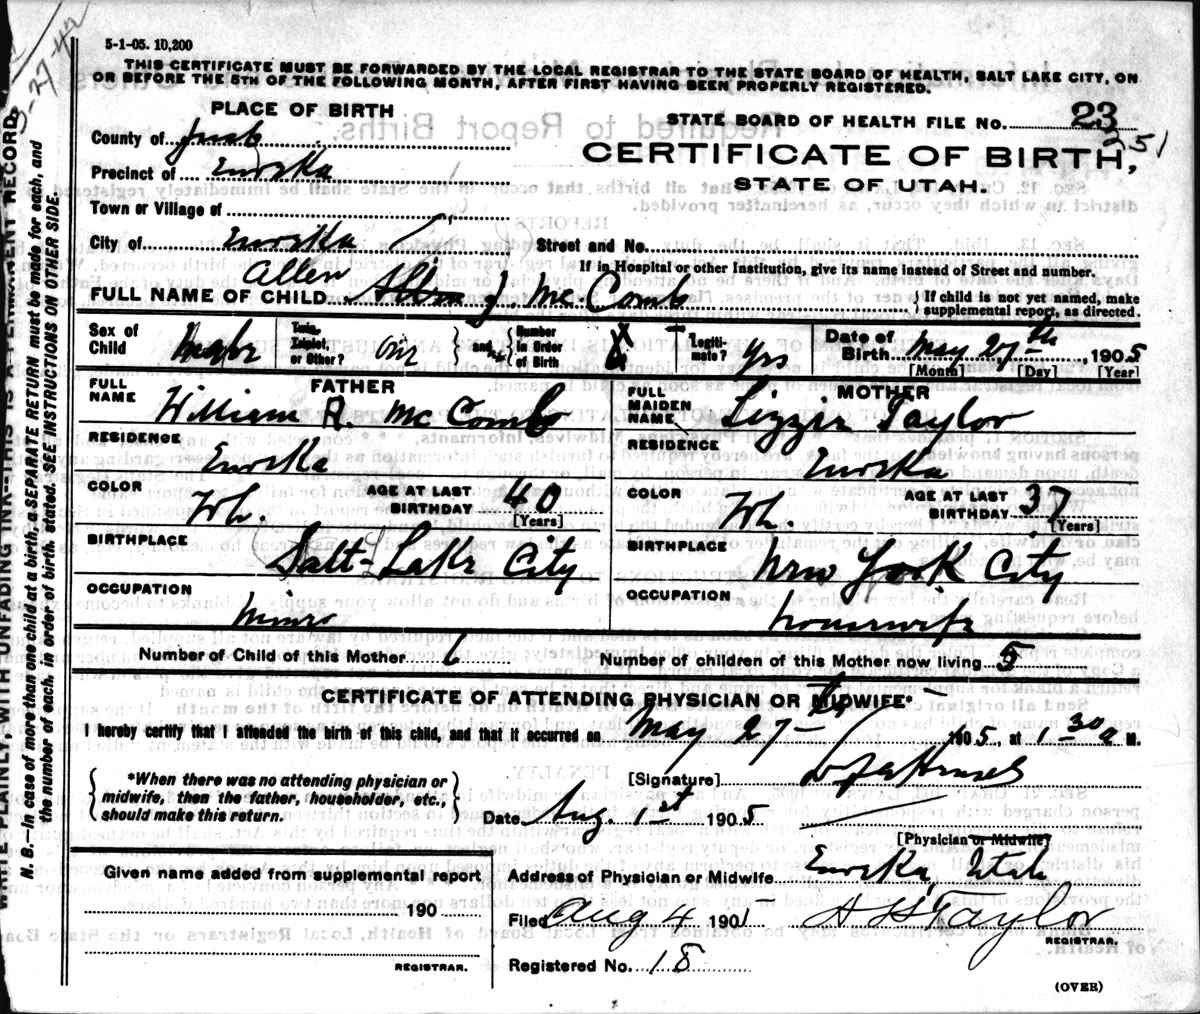 5-1-05. 10,200
3-27-42
THIS CERTIFICATE MUST BE FORWARDED BY THE LOCAL REGISTRAR TO THE STATE BOARD OF HEALTH, SALT LAKE CITY, ON
OR BEFORE THE 5TH OF THE FOLLOWING MONTH, AFTER FIRST HAVING BEEN PROPERLY REGISTERED.
PLACE OF BIRTH
County of Juab
Precinct of Eureka
Town or Village of
City of Eureka
STATE BOARD OF HEALTH FILE No. 23
251
CERTIFICATE OF BIRTH,
STATE OF UTAH.
Street and No.
If in Hospital or other Institution, give its name instead of Street and number.
Allen
FULL NAME OF CHILD J. McComb
{ If child is not yet named, make
supplemental report, as directed.
Sex of Child Male
Twin, Triplet, or Other? One
and
Number in Order of Birth
Legitimate? yes
Date of Birth May 27th, 1905
[Month] [Day] [Year]
FATHER
FULL NAME William R. McComb
RESIDENCE Eureka
COLOR Wh. AGE AT LAST BIRTHDAY 40 [Years]
BIRTHPLACE Salt Lake City
OCCUPATION Miner
MOTHER
FULL MAIDEN NAME Lizzie Taylor
RESIDENCE Eureka
COLOR Wh. AGE AT LAST BIRTHDAY 37 [Years]
BIRTHPLACE New York City
OCCUPATION Housewife
Number of Child of this Mother 6
Number of children of this Mother now living 5
CERTIFICATE OF ATTENDING PHYSICIAN OR MIDWIFE*
I hereby certify that I attended the birth of this child, and that it occurred on May 27th 1905, at 1 30 a M.
{ *When there was no attending physician or
midwife, then the father, householder, etc.,
should make this return. }
[Signature]
Date Aug. 1st 1905
[Physician or Midwife]
Given name added from supplemental report
190
REGISTRAR.
Address of Physician or Midwife Eureka, Utah
Filed Aug 4 1905 H Taylor
REGISTRAR.
Registered No. 18
(OVER)
WRITE PLAINLY, WITH UNFADING INK--THIS IS A PERMANENT RECORD.
N. B.--In case of more than one child at a birth, a SEPARATE RETURN must be made for each, and
the number of each, in order of birth, stated. SEE INSTRUCTIONS ON OTHER SIDE.